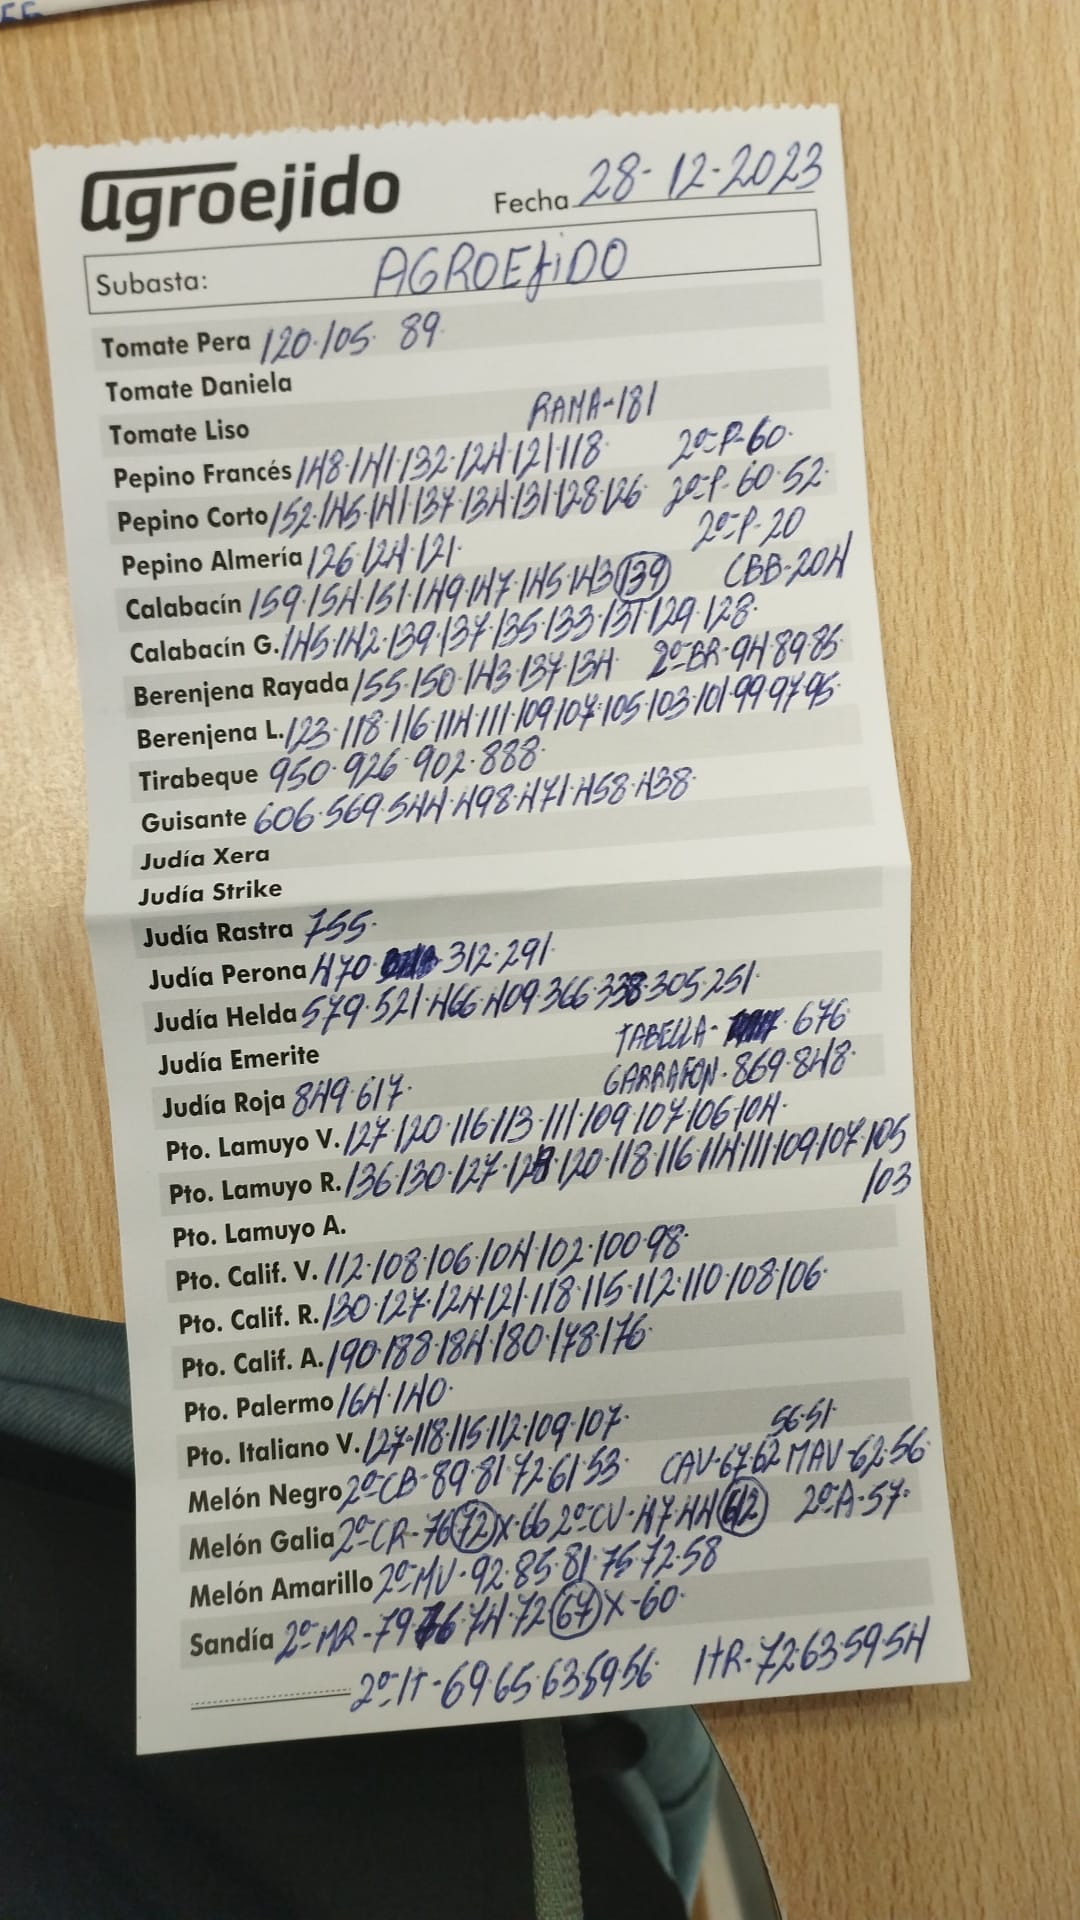 agroejido
Fecha 28-12-2023
Subasta: AGROEJIDO
Tomate Pera 120·105· 89·
Tomate Daniela
Tomate Liso RAMA-181
Pepino Francés 148·141·132·124·121·118· 2ª-P-60·
Pepino Corto 152·145·141·137·134·131·128·126· 2ª-P-60·52·
Pepino Almería 126·124·121· 2ª-P-20
Calabacín 159·154·151·149·147·145·143 139 CBB-204
Calabacín G. 145·142·139·137·135·133·131·129·128·
Berenjena Rayada 155·150·143·137·134· 2ª-BR-94·89·85·
Berenjena L. 123·118·116·114·111·109·107·105·103·101·99·97·95·
Tirabeque 950·926·902·888·
Guisante 606·569·544·498·471·458·438·
Judía Xera
Judía Strike
Judía Rastra 755·
Judía Perona 470 312·291·
Judía Helda 579·521·466·409·366·338·305·251·
Judía Emerite TABELLA- 676
Judía Roja 849·617· GARRAFON-869·848·
Pto. Lamuyo V. 127·120·116·113·111·109·107·106·104·
Pto. Lamuyo R. 136·130·127· 120·118·116·114·111·109·107·105
103
Pto. Lamuyo A.
Pto. Calif. V. 112·108·106·104·102·100·98·
Pto. Calif. R. 130·127·124·121·118·115·112·110·108·106·
Pto. Calif. A. 190·188·184·180·178·176·
Pto. Palermo 164·140·
Pto. Italiano V. 127·118·115·112·109·107· 56·51·
Melón Negro 2ª-CB-89·81·72·61·53· CAV-67·62 MAV-62·56·
Melón Galia 2ª-CR-76 72 X-66 2ª-CV-47·44 2ª-A-57·
Melón Amarillo 2ª-MV-92·85·81·75·72·58
Sandía 2ª-MR-79 74·72 67 X-60·
2ª-IT-69·65·63·59·56· ITR-72·63·59·54